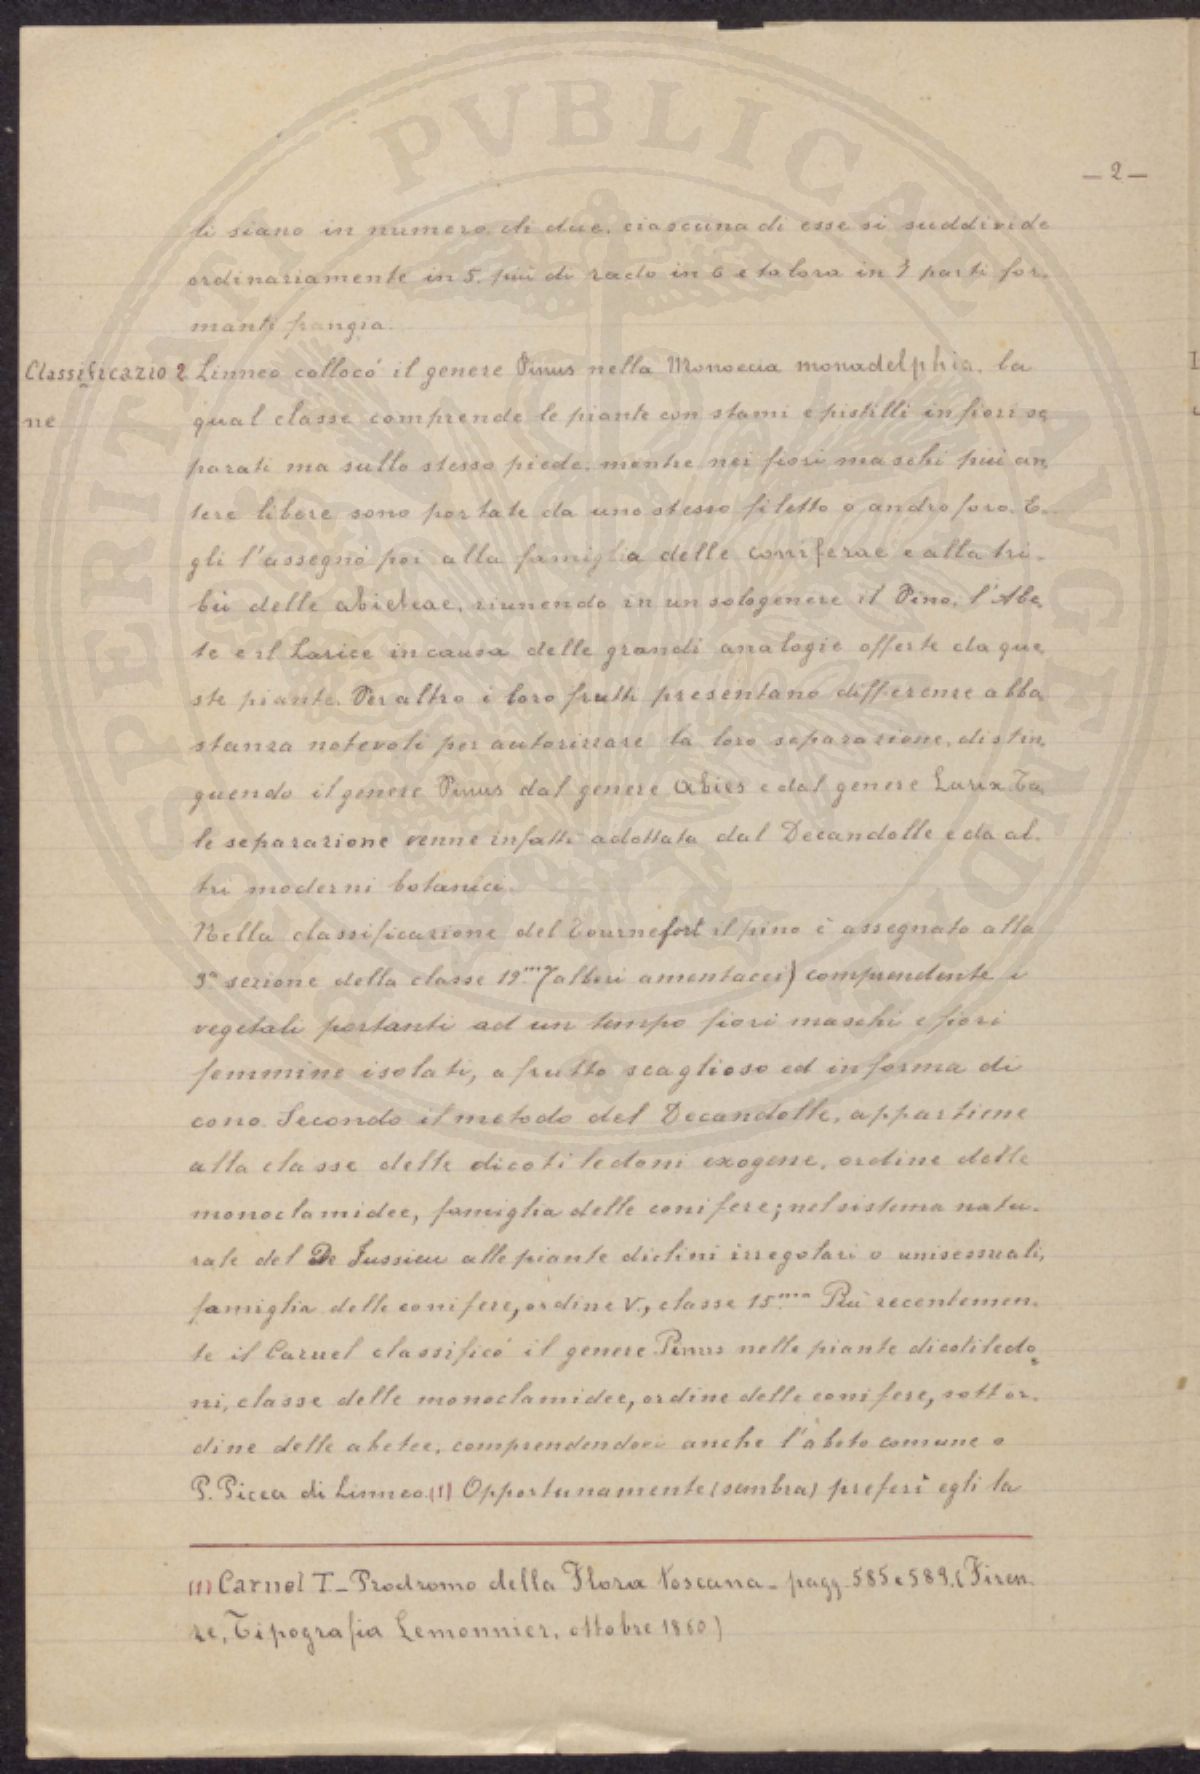 — 2 —
li siano in numero di due, ciascuna di esse si suddivide
ordinariamente in 5, più di rado in 6 e talora in 7 parti for-
manti frangia.
Classificazio 2 Linneo collocò il genere Pinus nella Monoecia monadelphia, la
ne qual classe comprende le piante con stami e pistilli in fiori se
parati ma sullo stesso piede, mentre nei fiori maschi più an
tere libere sono portate da uno stesso filetto o androforo. E-
gli l'assegnò poi alla famiglia delle coniferae e alla tri-
bù delle abieteae, riunendo in un solo genere il Pino, l'Abe
te e il Larice in causa delle grandi analogie offerte da que
ste piante. Per altro i loro frutti presentano differenze abba
stanza notevoli per autorizzare la loro separazione, distin
guendo il genere Pinus dal genere Abies e dal genere Larix. Ta
le separazione venne infatti adottata dal Decandolle e da al-
tri moderni botanici.
Nella classificazione del Tournefort il pino è assegnato alla
3ª sezione della classe 19.ma (alberi amentacei) comprendente i
vegetali portanti ad un tempo fiori maschi e fiori
femmine isolati, a frutto scaglioso ed in forma di
cono. Secondo il metodo del Decandolle, appartiene
alla classe delle dicotiledoni exogene, ordine delle
monoclamidee, famiglia delle conifere; nel sistema natu-
rale del De Jussieu alle piante diclini irregolari o unisessuali,
famiglia delle conifere, ordine V., classe 15.ma Più recentemen-
te il Caruel classificò il genere Pinus nelle piante dicotiledo
ni, classe delle monoclamidee, ordine delle conifere, sottor-
dine delle abetee, comprendendovi anche l'abeto comune o
P. Picea di Linneo.(1) Opportunamente (sembra) preferì egli la
(1) Caruel T_ Prodromo della Flora Toscana - pagg. 585 e 589. (Firen-
ze, Tipografia Lemonnier, ottobre 1860)
PROSPERITATI PVBLICAE AVGENDAE